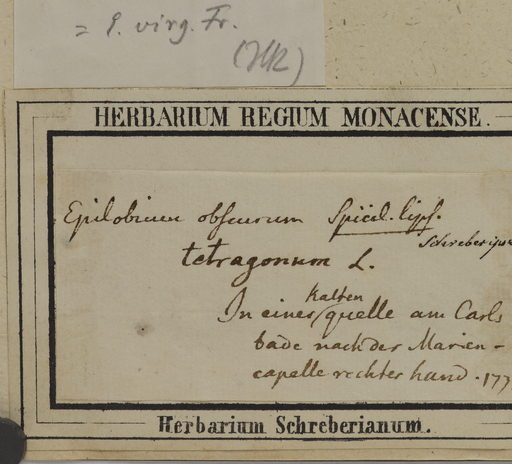 = E. virg. Fr.
(Hk)
HERBARIUM REGIUM MONACENSE.
Epilobium obscurum Spicil. lips.
Schreber ipse
tetragonum L.
kalten
In einer quelle am Carls
bade nach der Marien-
capelle rechter hand. 177
Herbarium Schreberianum.